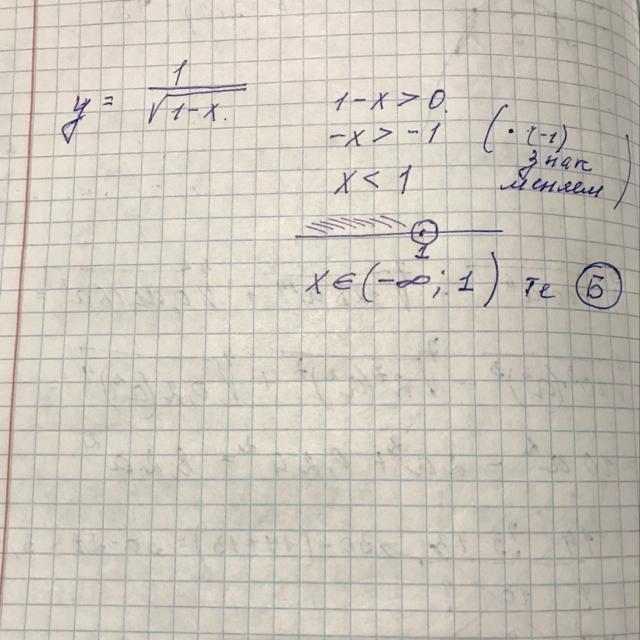 y = 1/√(1-x)
1-x > 0
-x > -1 (· (-1) знак меняем)
x < 1
1
x ∈ (-∞; 1) те Б